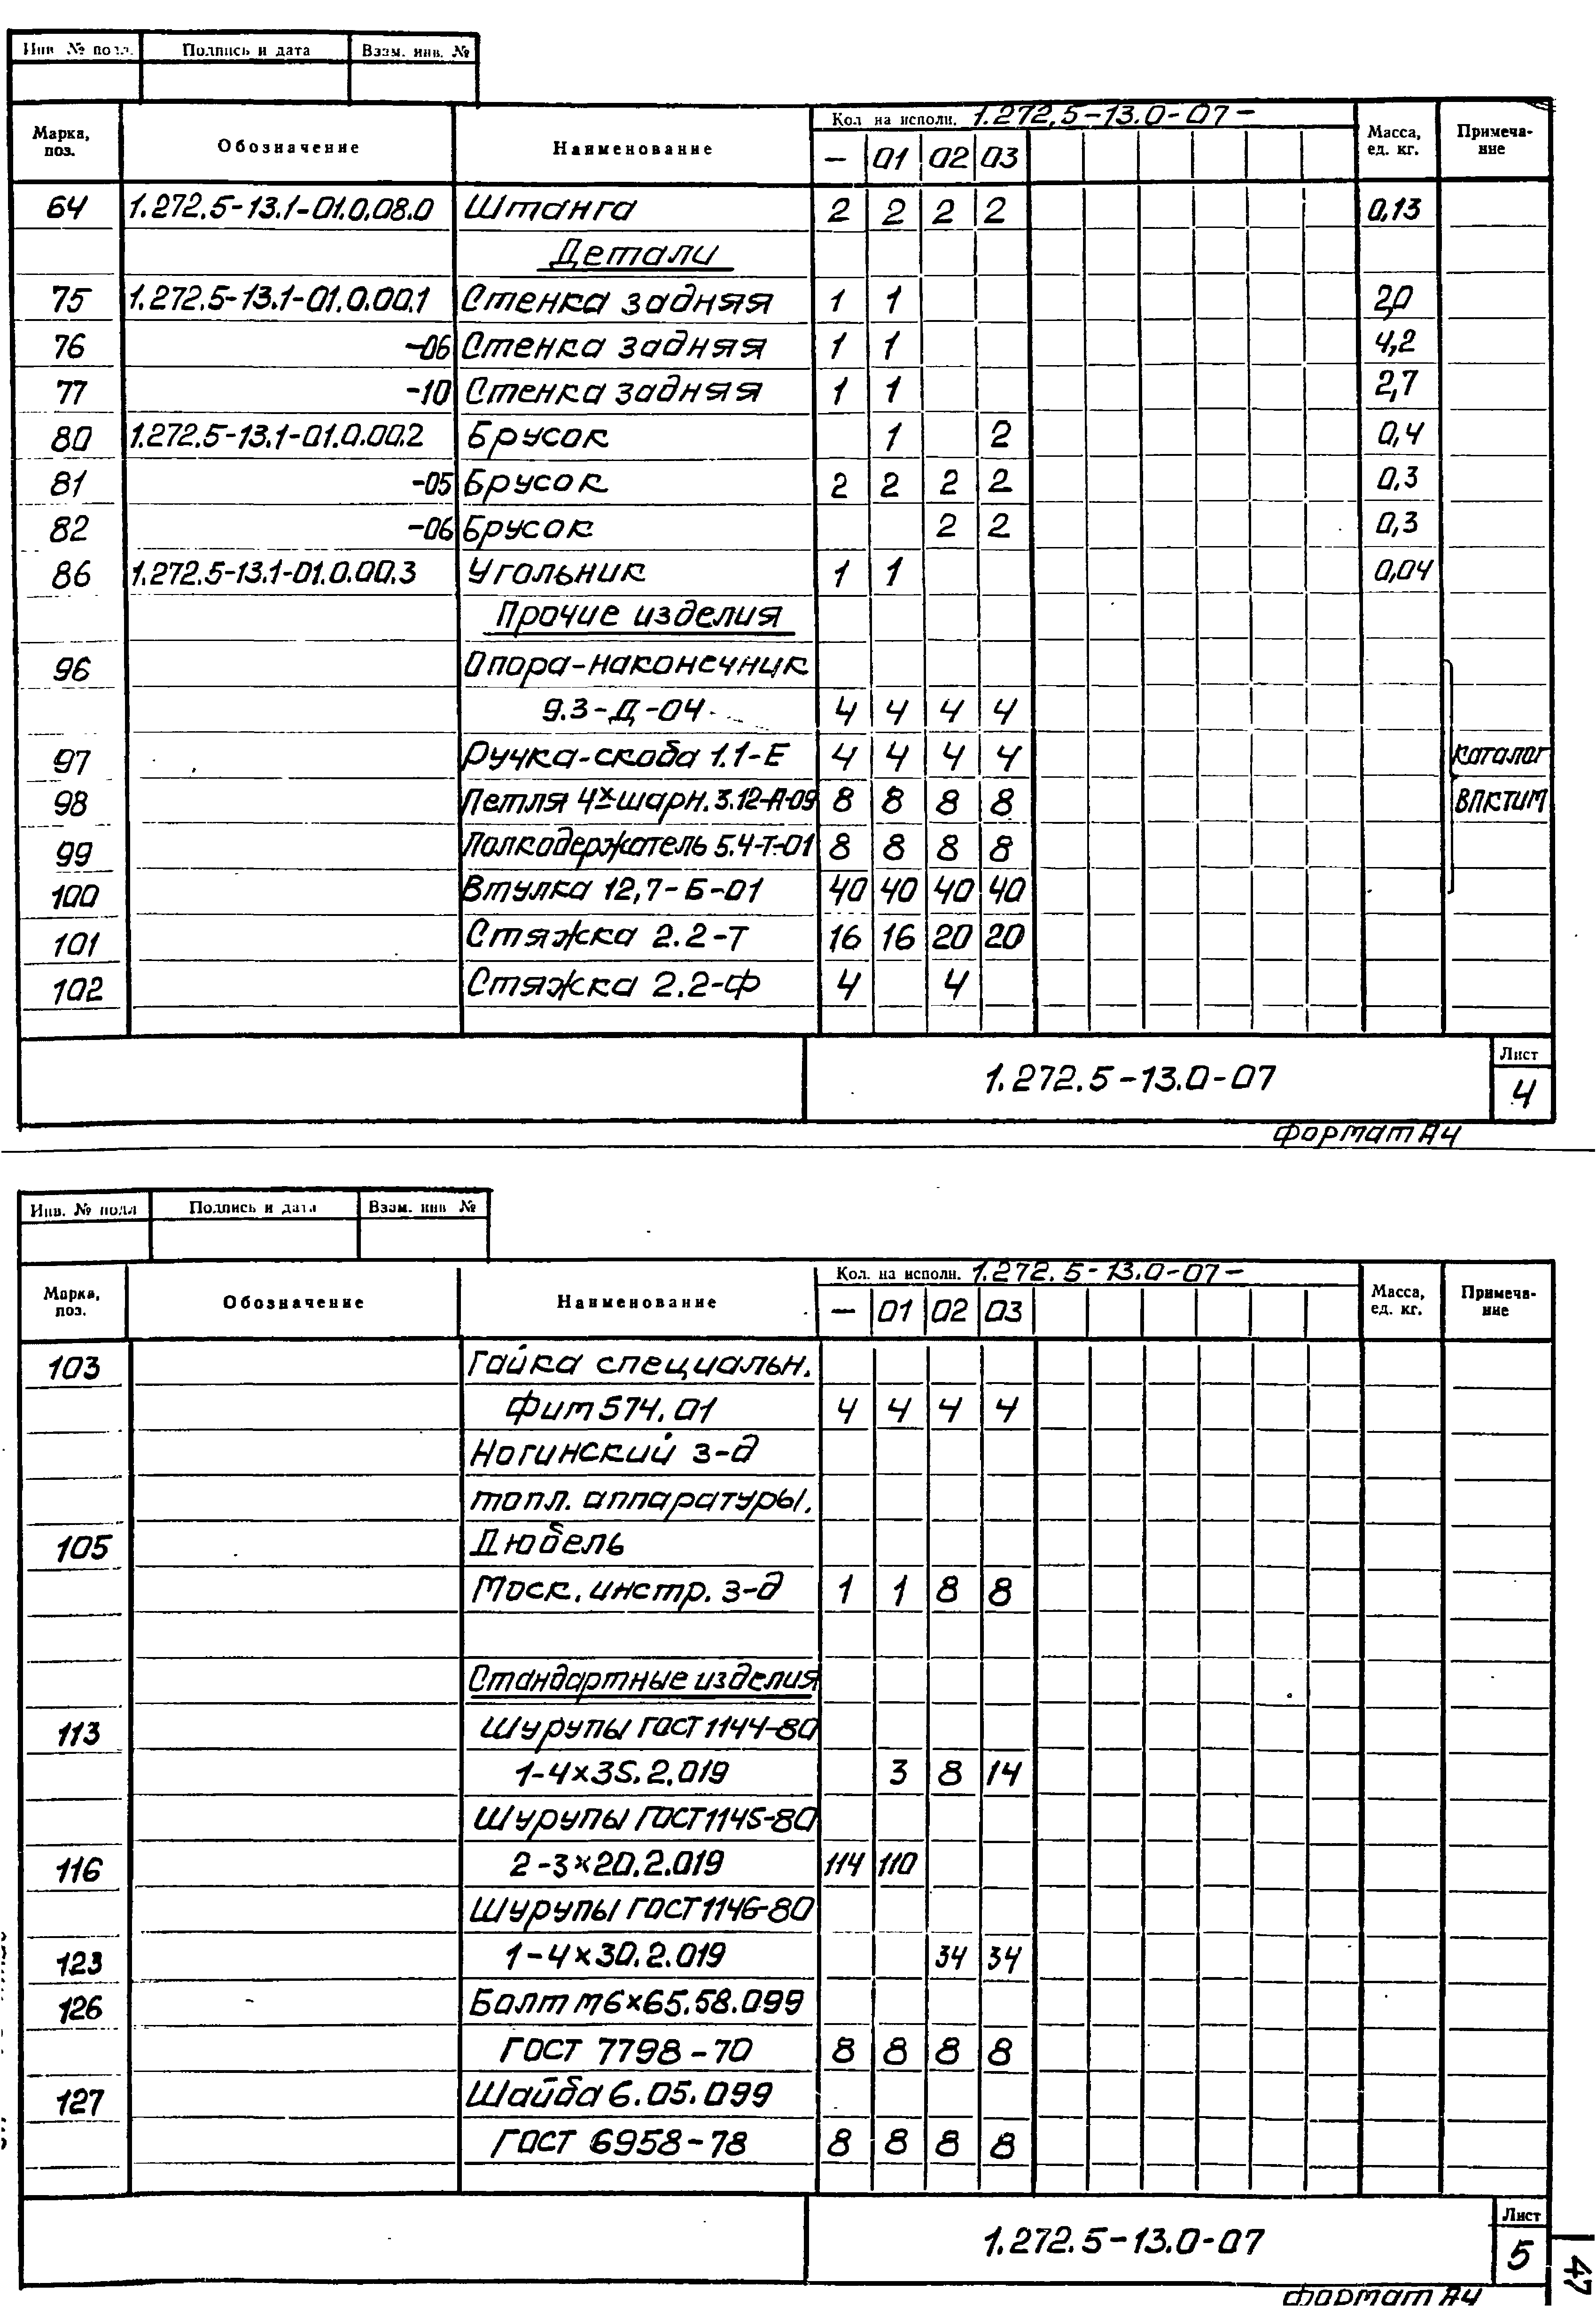 Инв № подл. Подпись и дата Взам. инв. №
Марка, поз. Обозначение Наименование Кол на исполн. 1.272.5-13.0-07- Масса, ед. кг. Примеча-ние
— 01 02 03
64 1.272.5-13.1-01.0.08.0 Штанга 2 2 2 2 0,13
Детали
75 1.272.5-13.1-01.0.00.1 Стенка задняя 1 1 2,0
76 -06 Стенка задняя 1 1 4,2
77 -10 Стенка задняя 1 1 2,7
80 1.272.5-13.1-01.0.00.2 Брусок 1 2 0,4
81 -05 Брусок 2 2 2 2 0,3
82 -06 Брусок 2 2 0,3
86 1.272.5-13.1-01.0.00.3 Угольник 1 1 0,04
Прочие изделия
96 Опора-наконечник
9.3-Д-04 4 4 4 4
97 Ручка-скоба 1.1-Е 4 4 4 4 каталог
98 Петля 4х шарн. 3.12-Л-09 8 8 8 8 ВПКТИМ
99 Полкодержатель 5.4-Т-01 8 8 8 8
100 Втулка 12,7-Б-01 40 40 40 40
101 Стяжка 2.2-Т 16 16 20 20
102 Стяжка 2.2-Ф 4 4
1.272.5-13.0-07 Лист 4
Формат А4
Инв. № подл Подпись и дата Взам. инв №
Марка, поз. Обозначение Наименование Кол. на исполн. 1.272.5-13.0-07- Масса, ед. кг. Примеча-ние
— 01 02 03
103 Гайка специальн.
Фит 574.01 4 4 4 4
Ногинский з-д
топл. аппаратуры.
105 Дюбель
Моск. инстр. з-д 1 1 8 8
Стандартные изделия
113 Шурупы ГОСТ 1144-80
1-4×35.2.019 3 8 14
Шурупы ГОСТ 1145-80
116 2-3×20.2.019 114 110
Шурупы ГОСТ 1146-80
123 1-4×30.2.019 34 34
126 Болт М6×65.58.099
ГОСТ 7798-70 8 8 8 8
127 Шайба 6.05.099
ГОСТ 6958-78 8 8 8 8
1.272.5-13.0-07 Лист 5
Формат А4
47